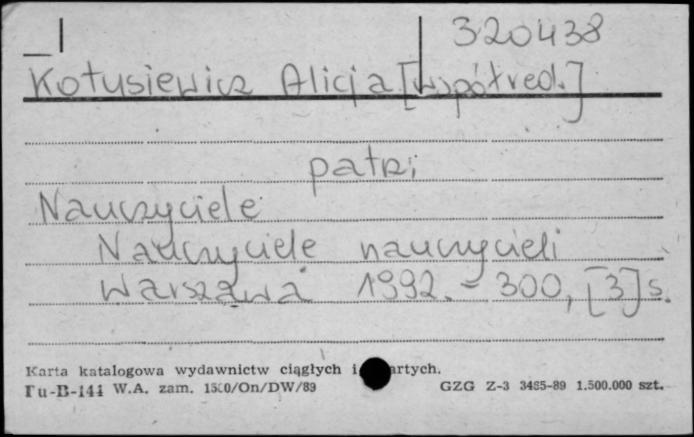 320438
Kołusiewicz Alicja [współred.]
patrz:
Nauczyciele
Nauczyciele nauczycieli
Warszawa 1992. - 300, [3] s.
Karta katalogowa wydawnictw ciągłych i artych.
Pu-B-144 W.A. zam. 1500/On/DW/89 GZG Z-3 3485-89 1.500.000 szt.